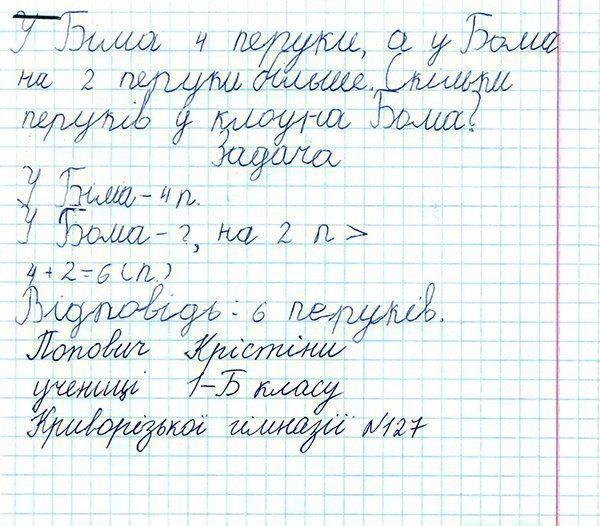 У Біма 4 перуки, а у Бома
на 2 перуки більше. Скільки
перуків у клоуна Бома?
Задача
У Біма – 4 п.
У Бома – ?, на 2 п >
4 + 2 = 6 (п.)
Відповідь: 6 перуків.
Попович Крістіни
учениці 1-Б класу
Криворізької гімназії №127